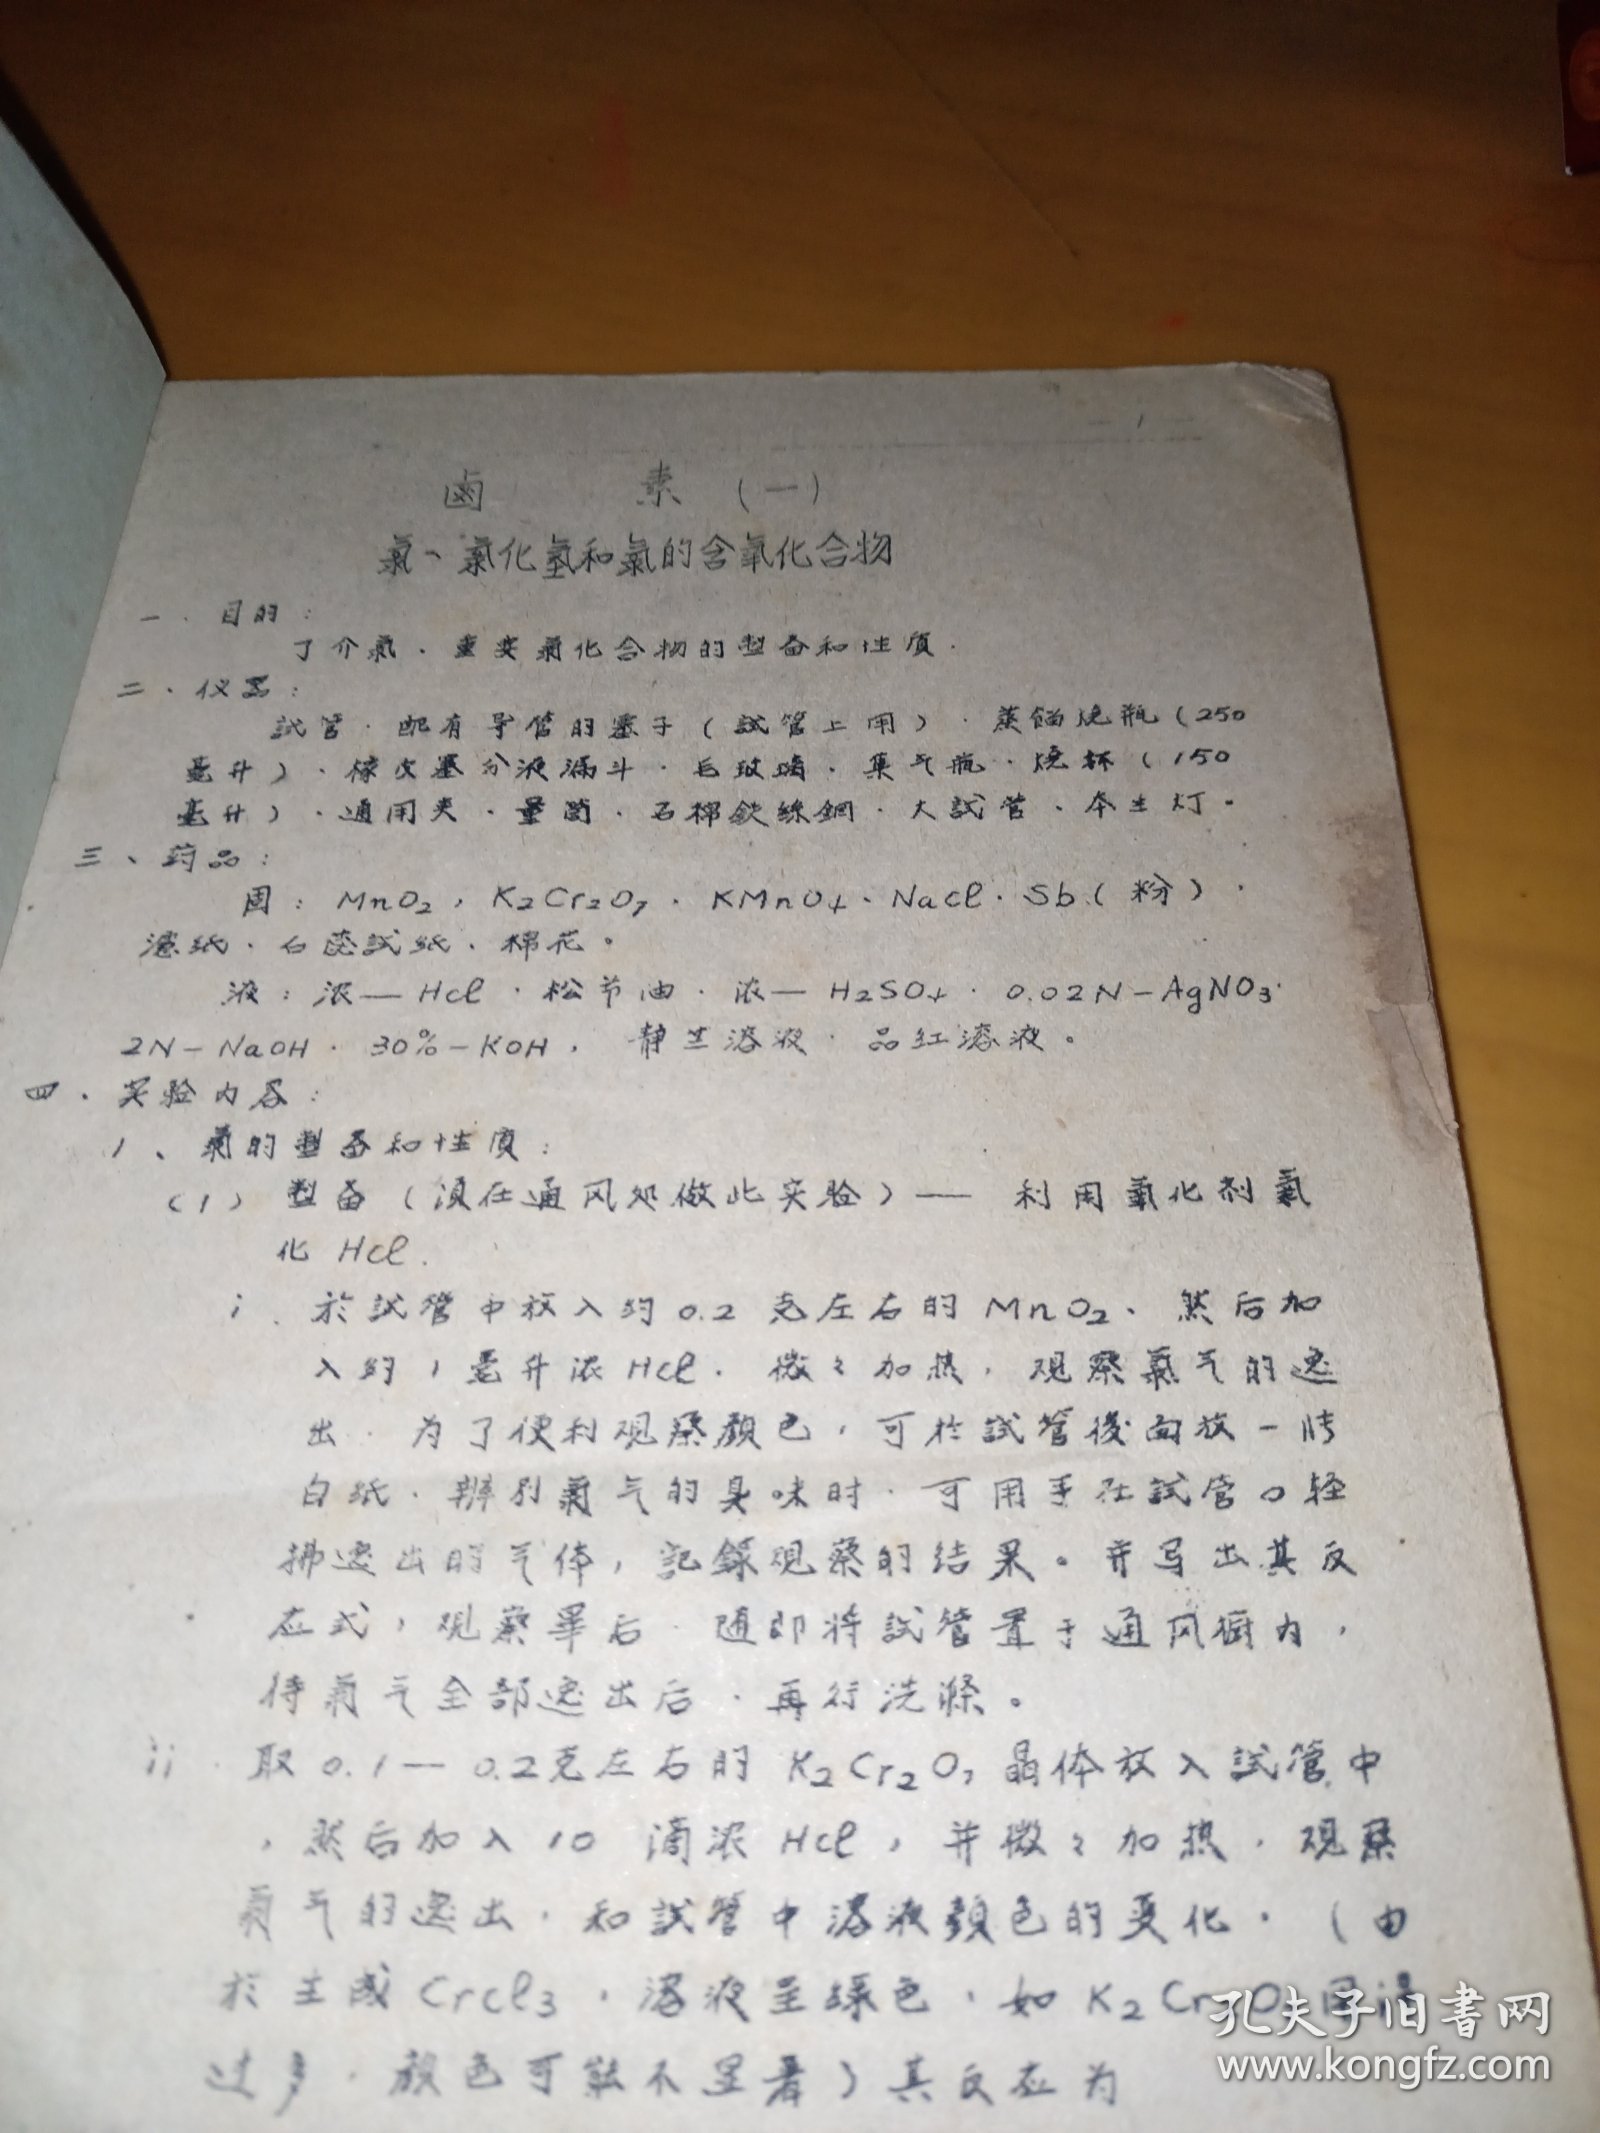 — 1 —
鹵 素 (一)
氯、氯化氢和氯的含氧化合物
一、目的：
了介氯、重要氯化合物的型备和性质．
二、仪器：
試管、配有导管的塞子（試管上用）、蒸餾烧瓶（250
毫升）、橡皮塞分液漏斗、毛玻璃、集气瓶、烧杯（150
毫升）、通用夹、量筒、石棉鉄絲網、大試管、本生灯。
三、药品：
固：MnO2，K2Cr2O7、KMnO4、NaCl、Sb（粉）、
濾紙、石蕊試紙、棉花。
液：浓—HCl、松节油、浓—H2SO4、0.02N—AgNO3、
2N—NaOH、30%—KOH， 溶液、品紅溶液。
四、实验内容：
1、氯的型备和性质：
（1）型备（须在通风处做此实验）—— 利用氧化剂氧
化 HCl．
i．於試管中放入约 0.2 克左右的 MnO2、然后加
入约 1 毫升浓 HCl．微々加热，观察氯气的逸
出．为了便利观察顏色，可於試管後面放一
白紙．辨别氯气的臭味时．可用手在試管口轻
拂逸出的气体，記錄观察的结果。并写出其反
应式，观察畢后．随即将試管置于通风橱内，
待氯气全部逸出后．再行洗滌。
ii．取 0.1—0.2克左右的 K2Cr2O7 晶体放入試管中
，然后加入 10 滴浓 HCl，并微々加热．观察
氯气的逸出．和試管中溶液顏色的变化．（由
於生成 CrCl3，溶液呈绿色．如 K2Cr2O7 用得
过多．顏色可能不显著）其反应为
孔夫子旧書网
www.kongfz.com